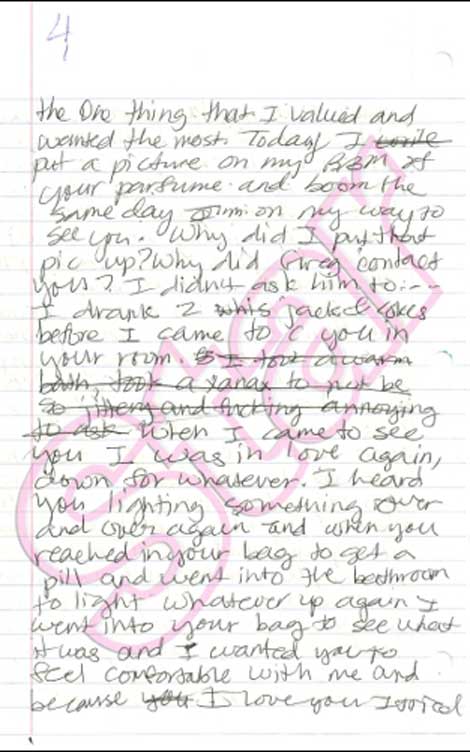 4
the One thing that I valued and
wanted the most. Today I write
put a picture on my BBM of
your parfume and boom the
same day I'm on my way to
see you. Why did I put that
pic up? Why did contact
you? I didn't ask him to...
I drank 2 jack & cokes
before I came to c you in
your room. I took a warm
bath, took a xanax to not be
so jittery and fucking annoying
to ask When I came to see
you I was in love again,
down for whatever. I heard
you lighting something over
and over again and when you
reached in your bag to get a
pill and went into the bathroom
to light whatever up again I
went into your bag to see what
it was and I wanted you to
feel comfortable with me and
because you I love you I
Star